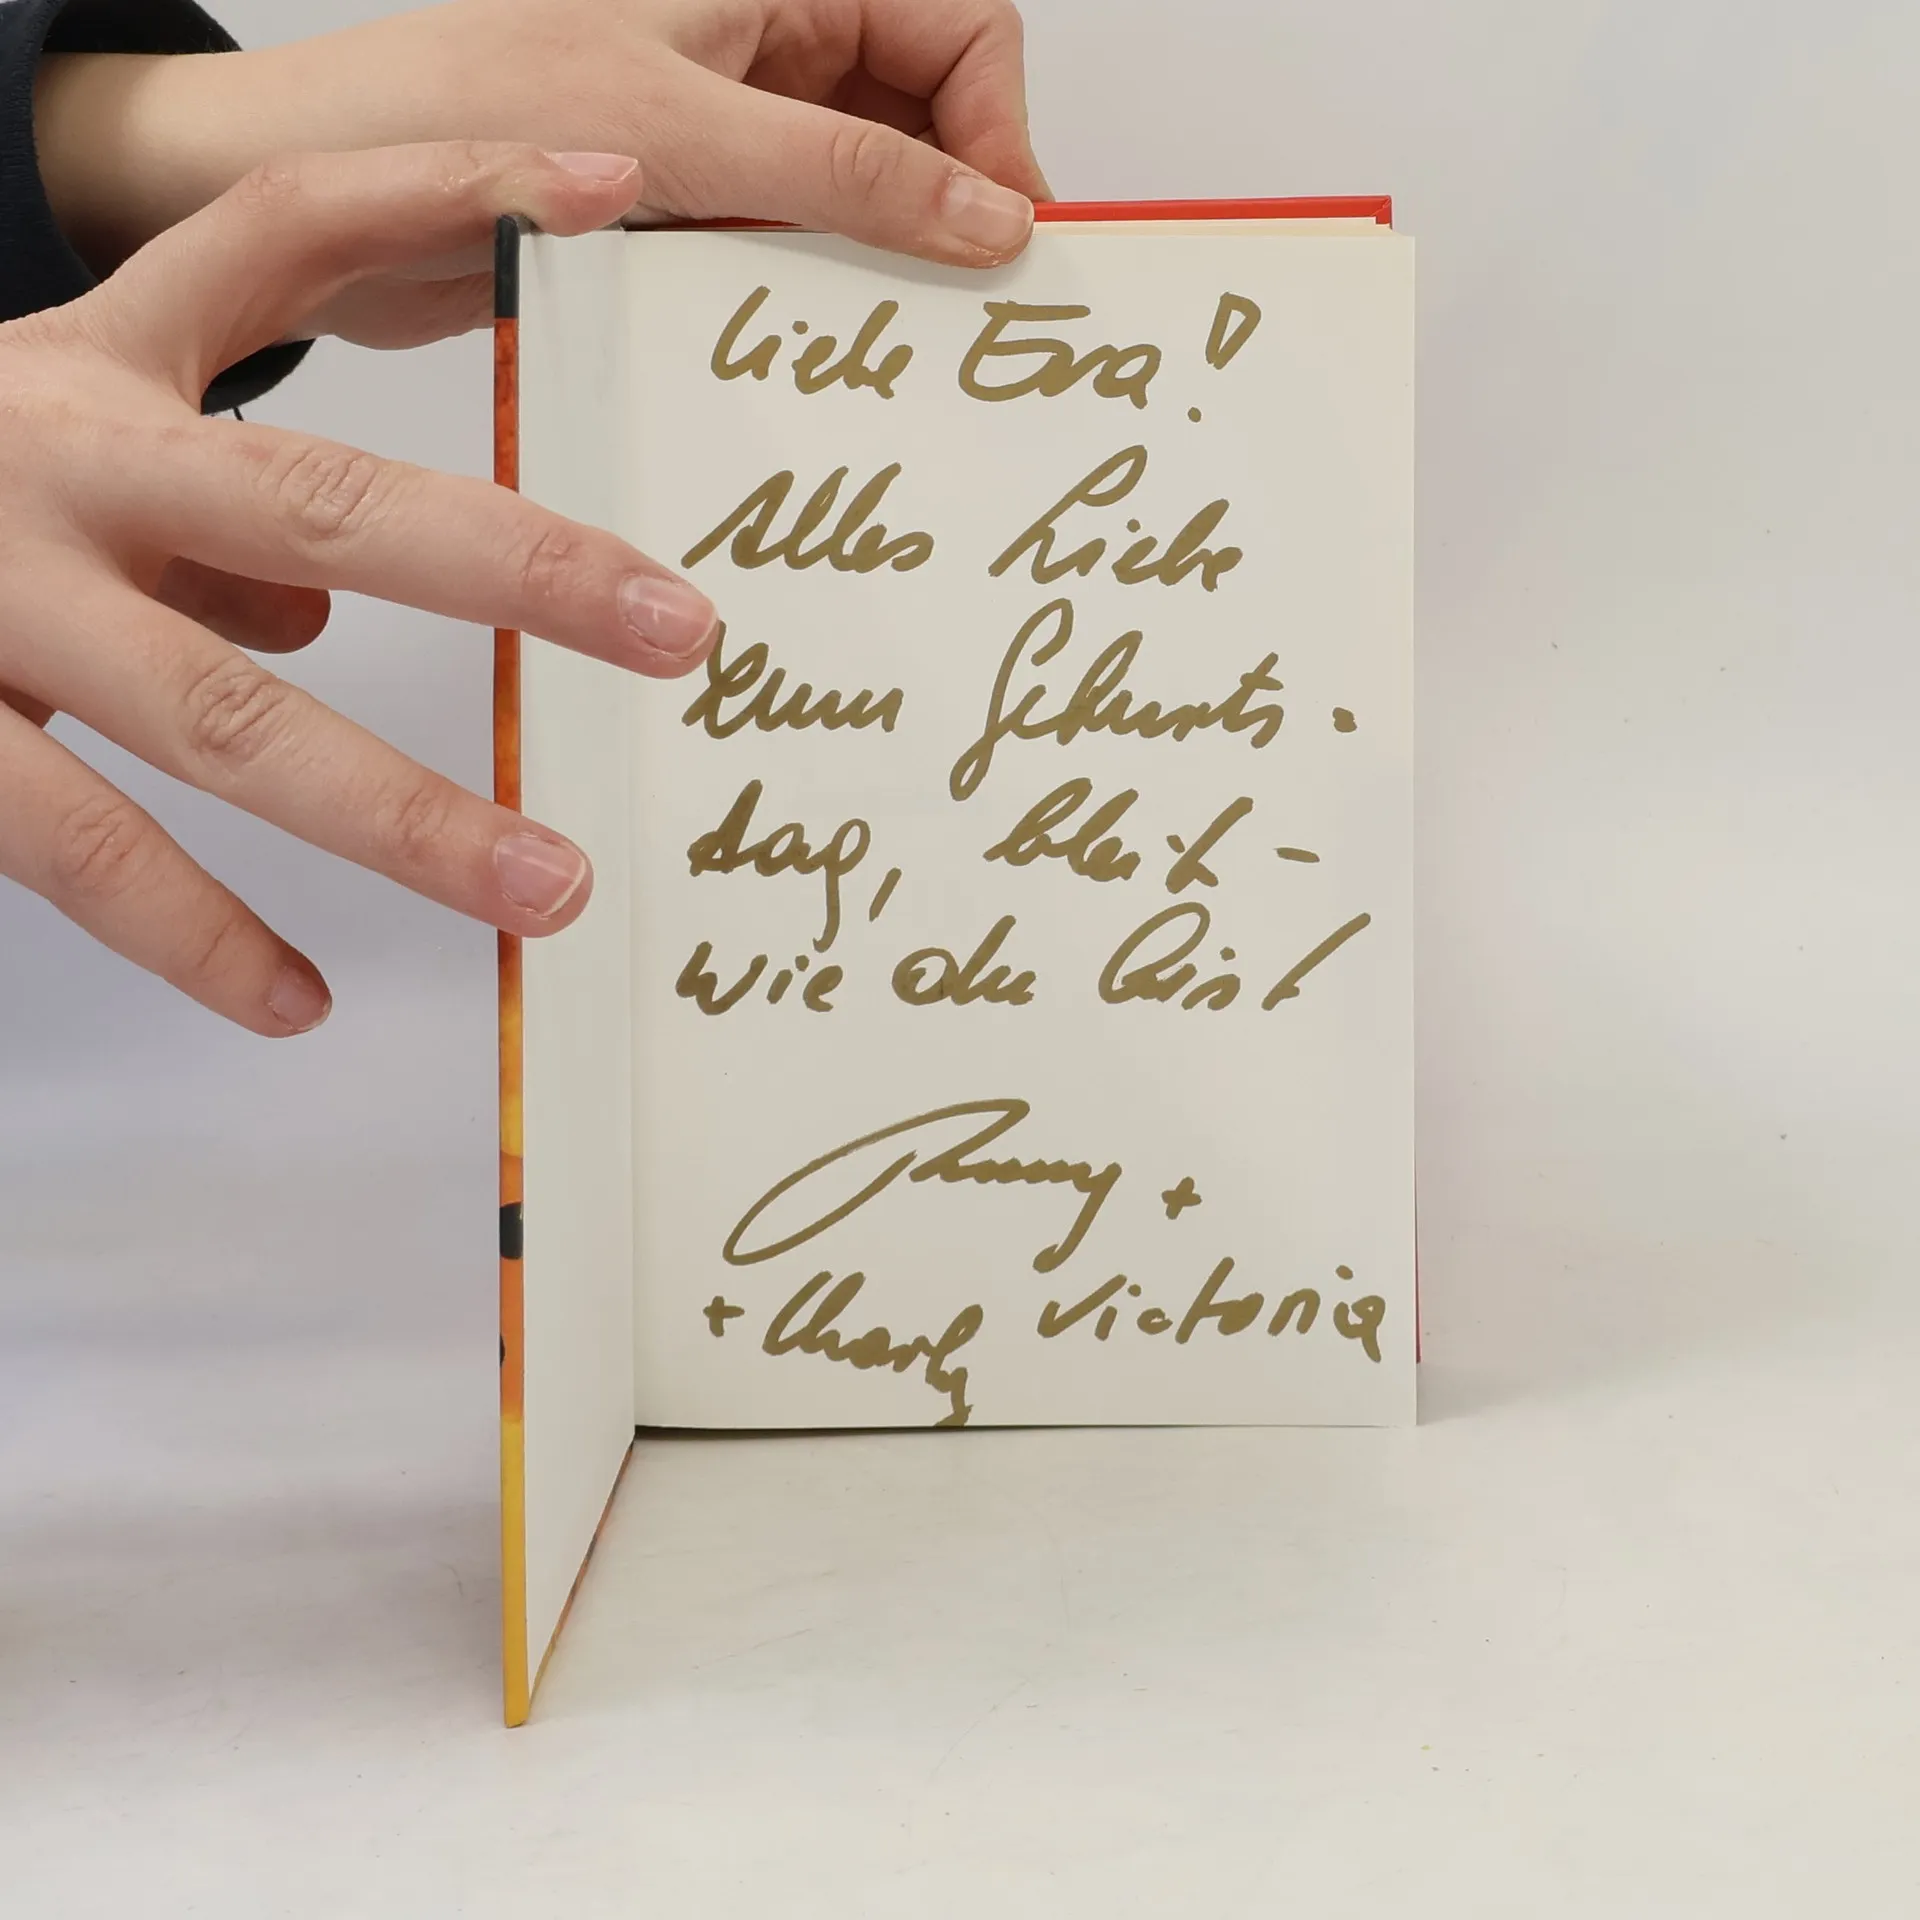 Liebe Eva!
Alles Liebe
zum Geburts-
tag, bleib -
wie du bist
+
+ Charly Victoria